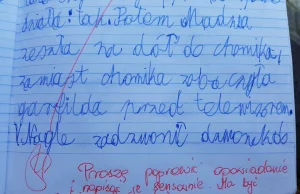 działa: tak. Potem Madzia
zeszła na dół do chomika,
zamiast chomika zobaczyła
garfilda przed telewizorem.
Nagle zadzwonił dzwonek do
Proszę poprawić opowiadanie
i napisać je sensownie. Ma być